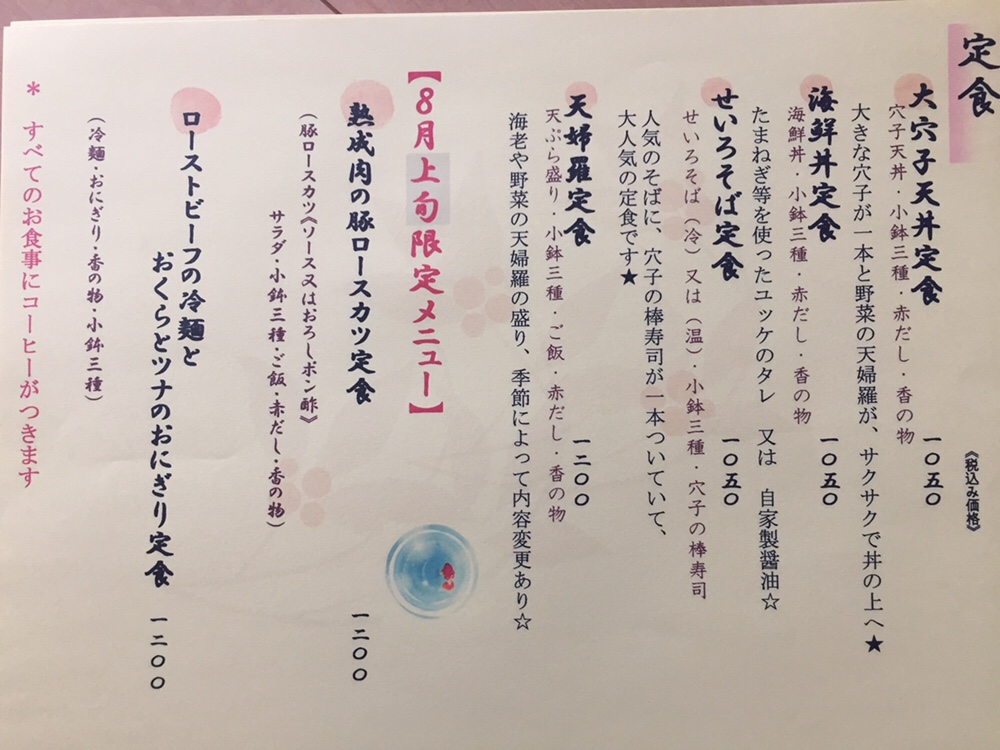 定食
《税込み価格》
大穴子天丼定食 一〇五〇
穴子天丼・小鉢三種・赤だし・香の物
大きな穴子が一本と野菜の天婦羅が、サクサクで丼の上へ★
海鮮丼定食 一〇五〇
海鮮丼・小鉢三種・赤だし・香の物
たまねぎ等を使ったユッケのタレ 又は 自家製醤油☆
せいろそば定食 一〇五〇
せいろそば（冷）又は（温）・小鉢三種・穴子の棒寿司
人気のそばに、穴子の棒寿司が一本ついていて、
大人気の定食です★
天婦羅定食 一二〇〇
天ぷら盛り・小鉢三種・ご飯・赤だし・香の物
海老や野菜の天婦羅の盛り、季節によって内容変更あり☆
【8月上旬限定メニュー】
熟成肉の豚ロースカツ定食 一二〇〇
（豚ロースカツ《ソース又はおろしポン酢》
サラダ・小鉢三種・ご飯・赤だし・香の物）
ローストビーフの冷麺と
おくらとツナのおにぎり定食 一二〇〇
（冷麺・おにぎり・香の物・小鉢三種）
＊ すべてのお食事にコーヒーがつきます